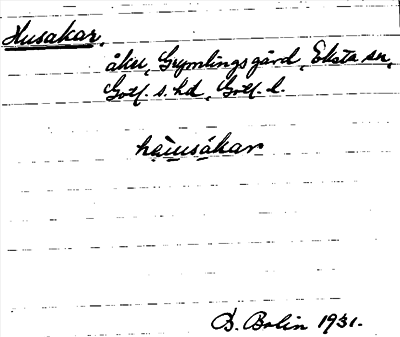 Husakar,
åker, Grymlings gård, Eksta sn,
Gotl. s. hd, Gotl. l.
hèusåkar
B. Bolin 1931.